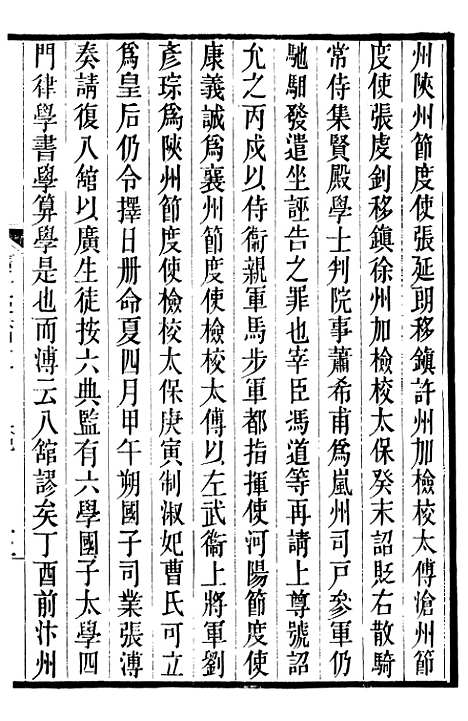 州陝州節度使張延朗移鎮許州加檢校太傅滄州節
度使張虔釗移鎮徐州加檢校太保癸未詔貶右散騎
常侍集賢殿學士判院事蕭希甫爲嵐州司戸參軍仍
馳馹發遣坐誣告之罪也宰臣馮道等再請上尊號詔
允之丙戍以侍衞親軍馬步軍都指揮使河陽節度使
康義誠爲襄州節度使檢校太傅以左武衞上將軍劉
彥琮爲陝州節度使檢校太保庚寅制淑妃曹氏可立
爲皇后仍令擇日册命夏四月甲午朔國子司業張溥
奏請復八館以廣生徒按六典監有六學國子太學四
門律學書學算學是也而溥云八館謬矣丁酉前汴州